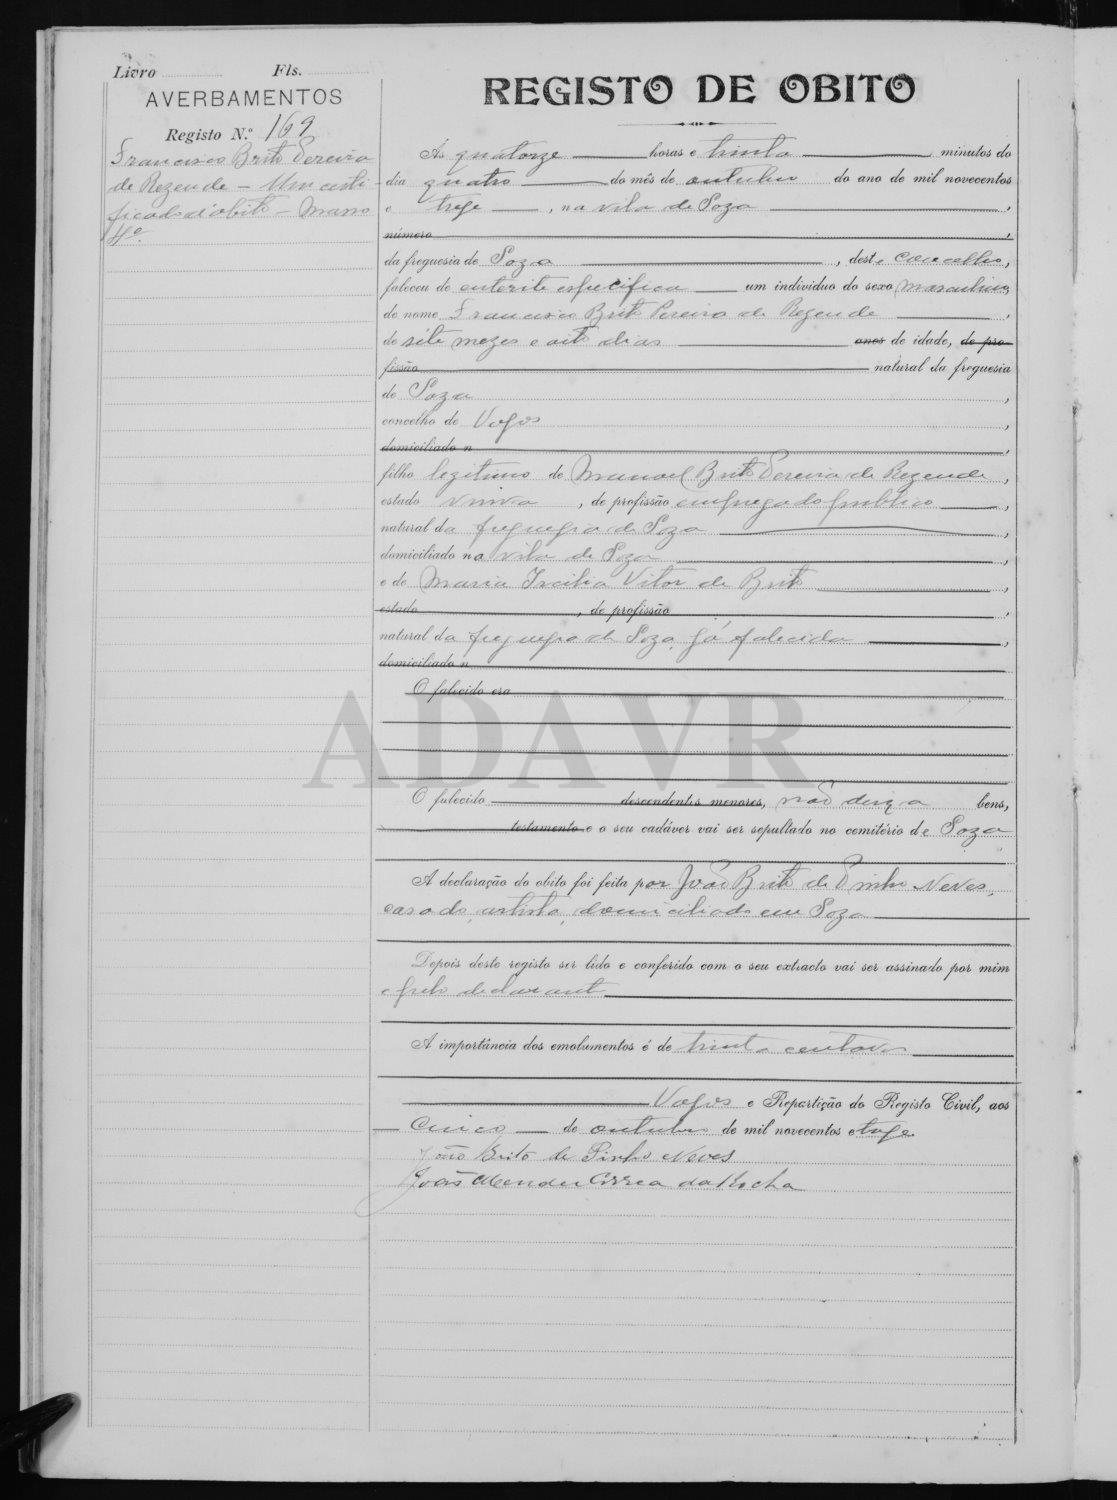 Livro Fls.
AVERBAMENTOS
Registo N.º 169
Francisco Brito Pereira
de Rezende - Um certi-
ficado d'obito - Maço
4º
REGISTO DE OBITO
Às quatorze horas e trinta minutos do
dia quatro do mês de outubro do ano de mil novecentos
e treze, na vila de Soza,
número,
da freguesia de Soza, deste concelho,
faleceu de enterite especifica um individuo do sexo masculino
de nome Francisco Brito Pereira de Rezende,
de séte mezes e oito dias anos de idade, de pro-
fissão natural da freguesia
de Soza,
concelho de Vagos,
domiciliado n,
filho legitimo de Manoel Brito Pereira de Rezende,
estado viuvo, de profissão empregado publico,
natural da freguezia de Soza,
domiciliado na vila de Soza,
e de Maria Vitor de Brito,
estado, de profissão,
natural da freguezia de Soza, já falecida,
domiciliado n
O falecido era
ADAVR
O falecido descendentes menores, não deixa bens,
testamento e o seu cadáver vai ser sepultado no cemitério de Soza
A declaração do obito foi feita por João Brito de Pinho Neves,
casado, artista, domiciliado em Soza
Depois deste registo ser lido e conferido com o seu extracto vai ser assinado por mim
e pelo declarante
A importância dos emolumentos é de trinta centavos
Vagos e Repartição do Registo Civil, aos
cinco de outubro de mil novecentos e treze
João Brito de Pinho Neves
João Mendes Correa da Rocha